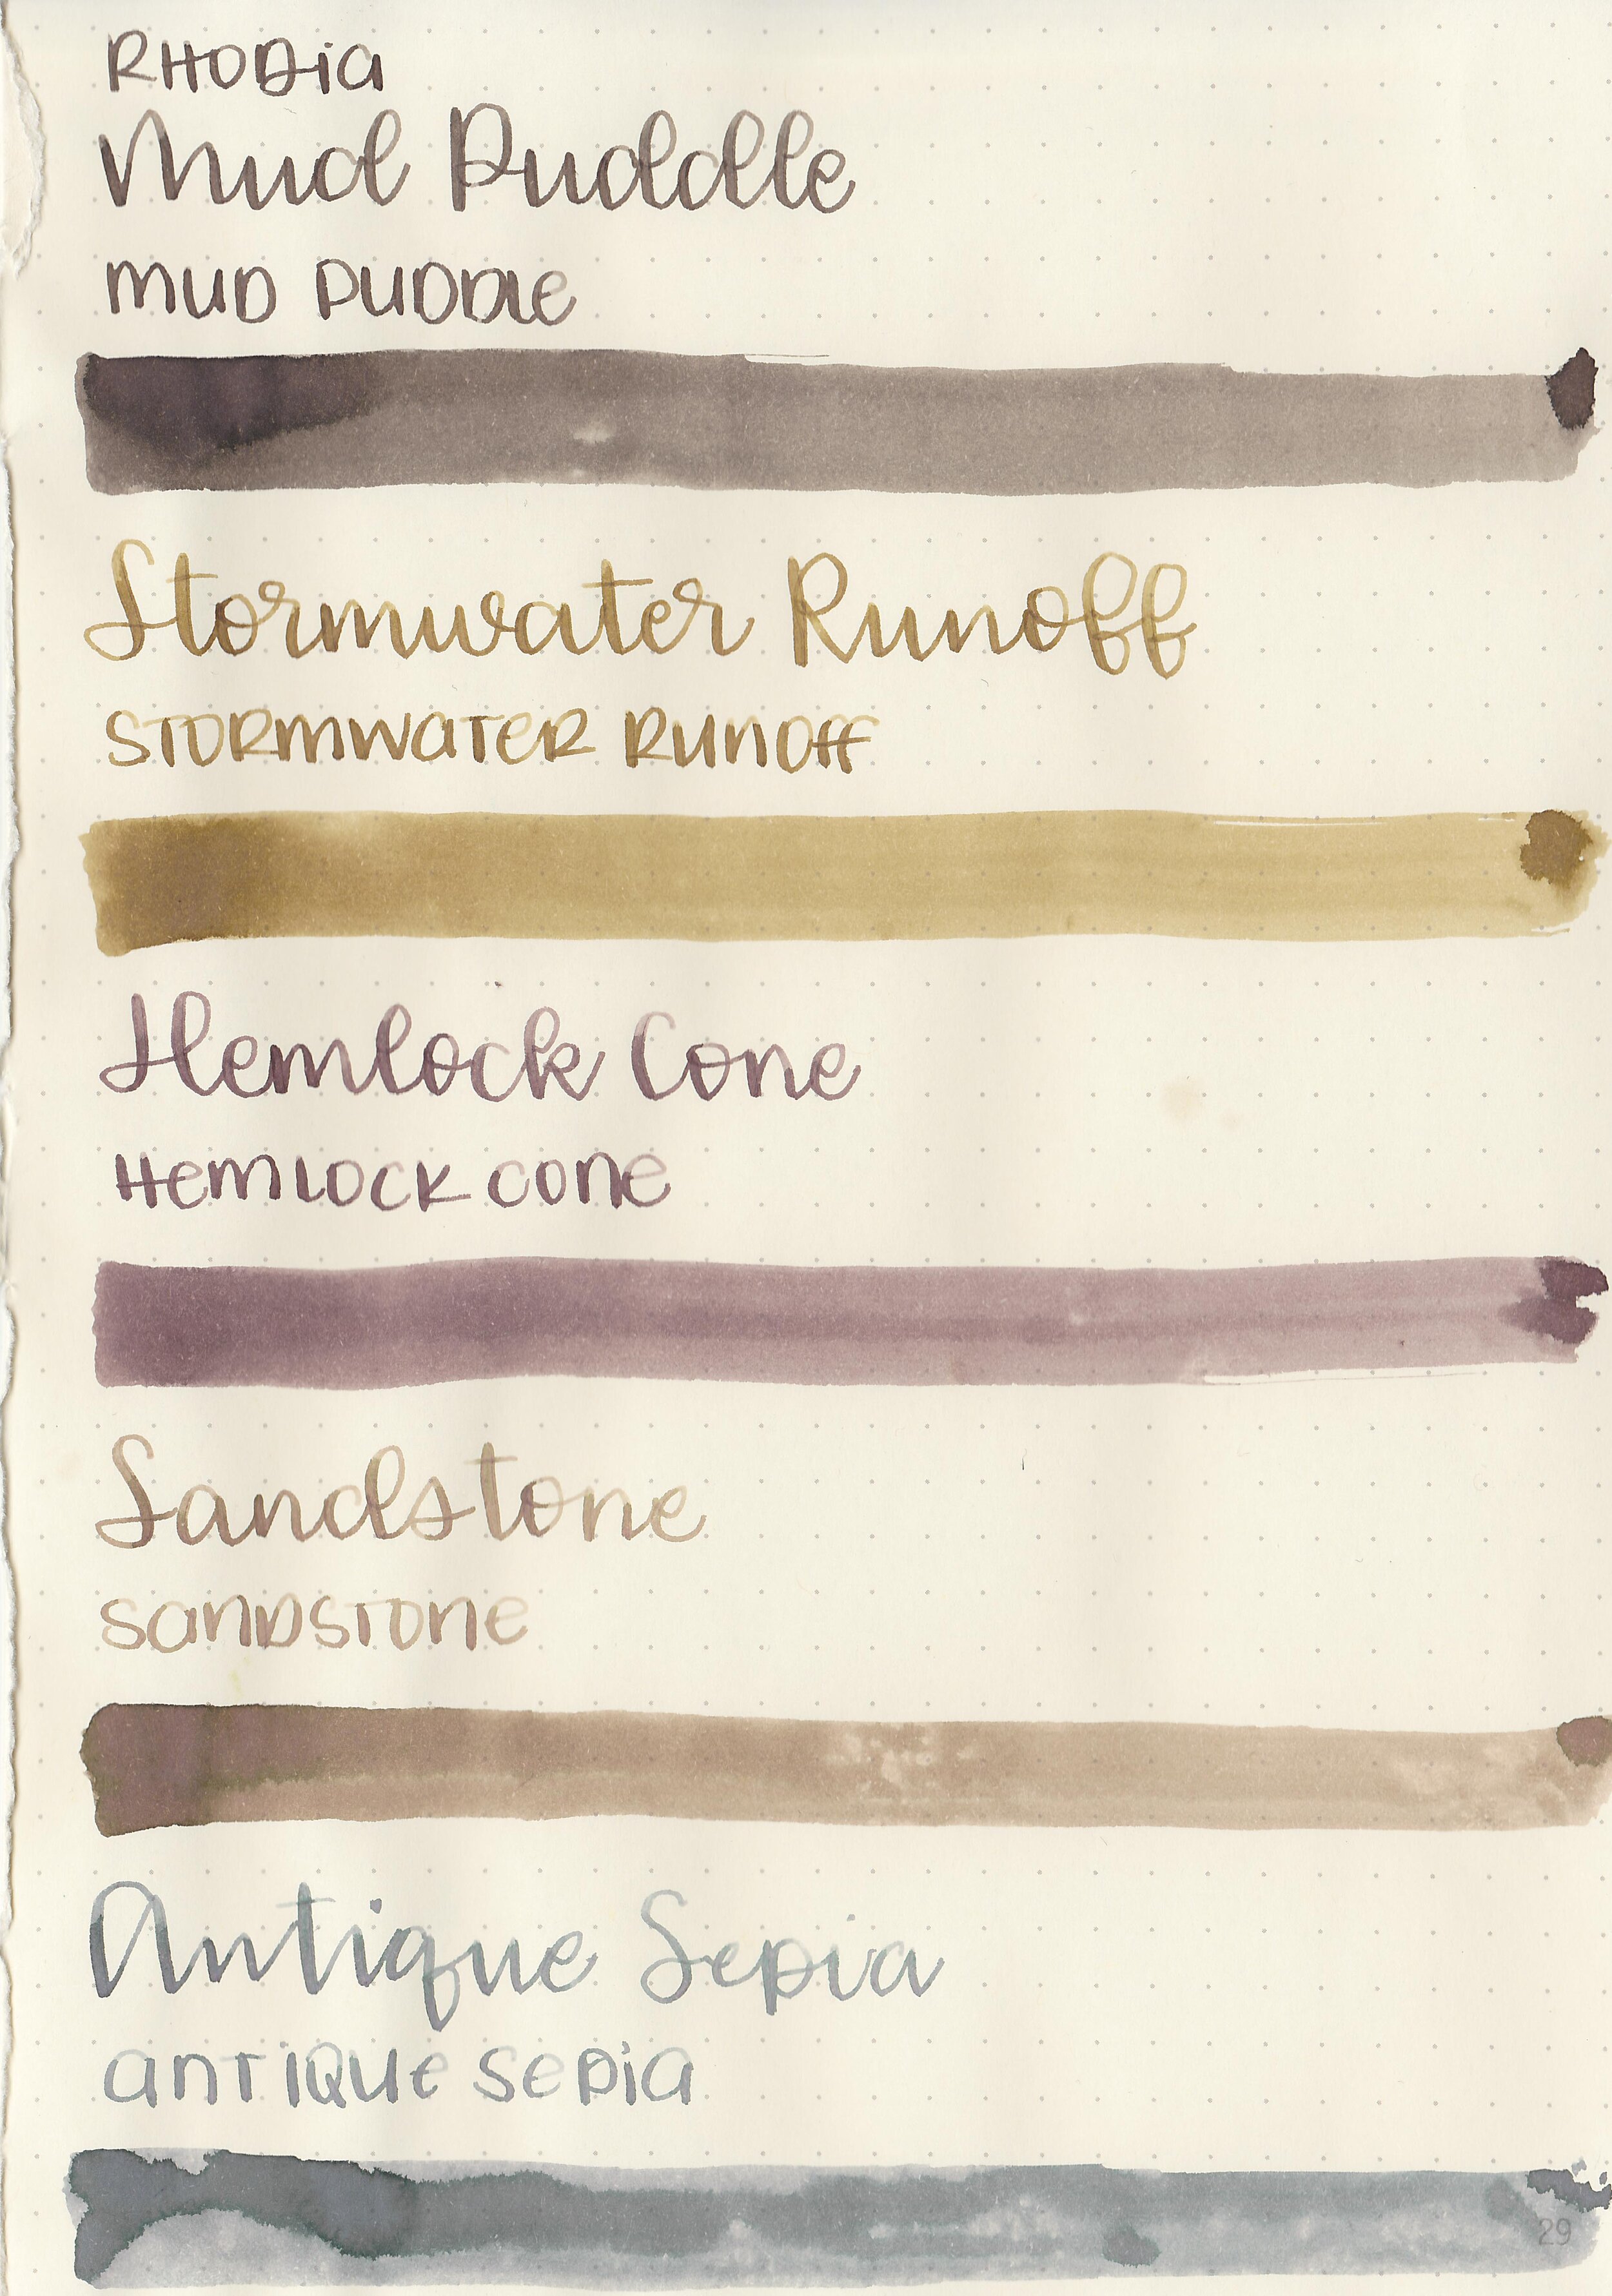 RHODia
Mud Puddle
MUD PUDDLe
Stormwater Runoff
STORMWaTeR RUnOff
Hemlock Cone
HemLOCK COne
Sandstone
SanDSTOne
Antique Sepia
anTIQUe Sepia
29